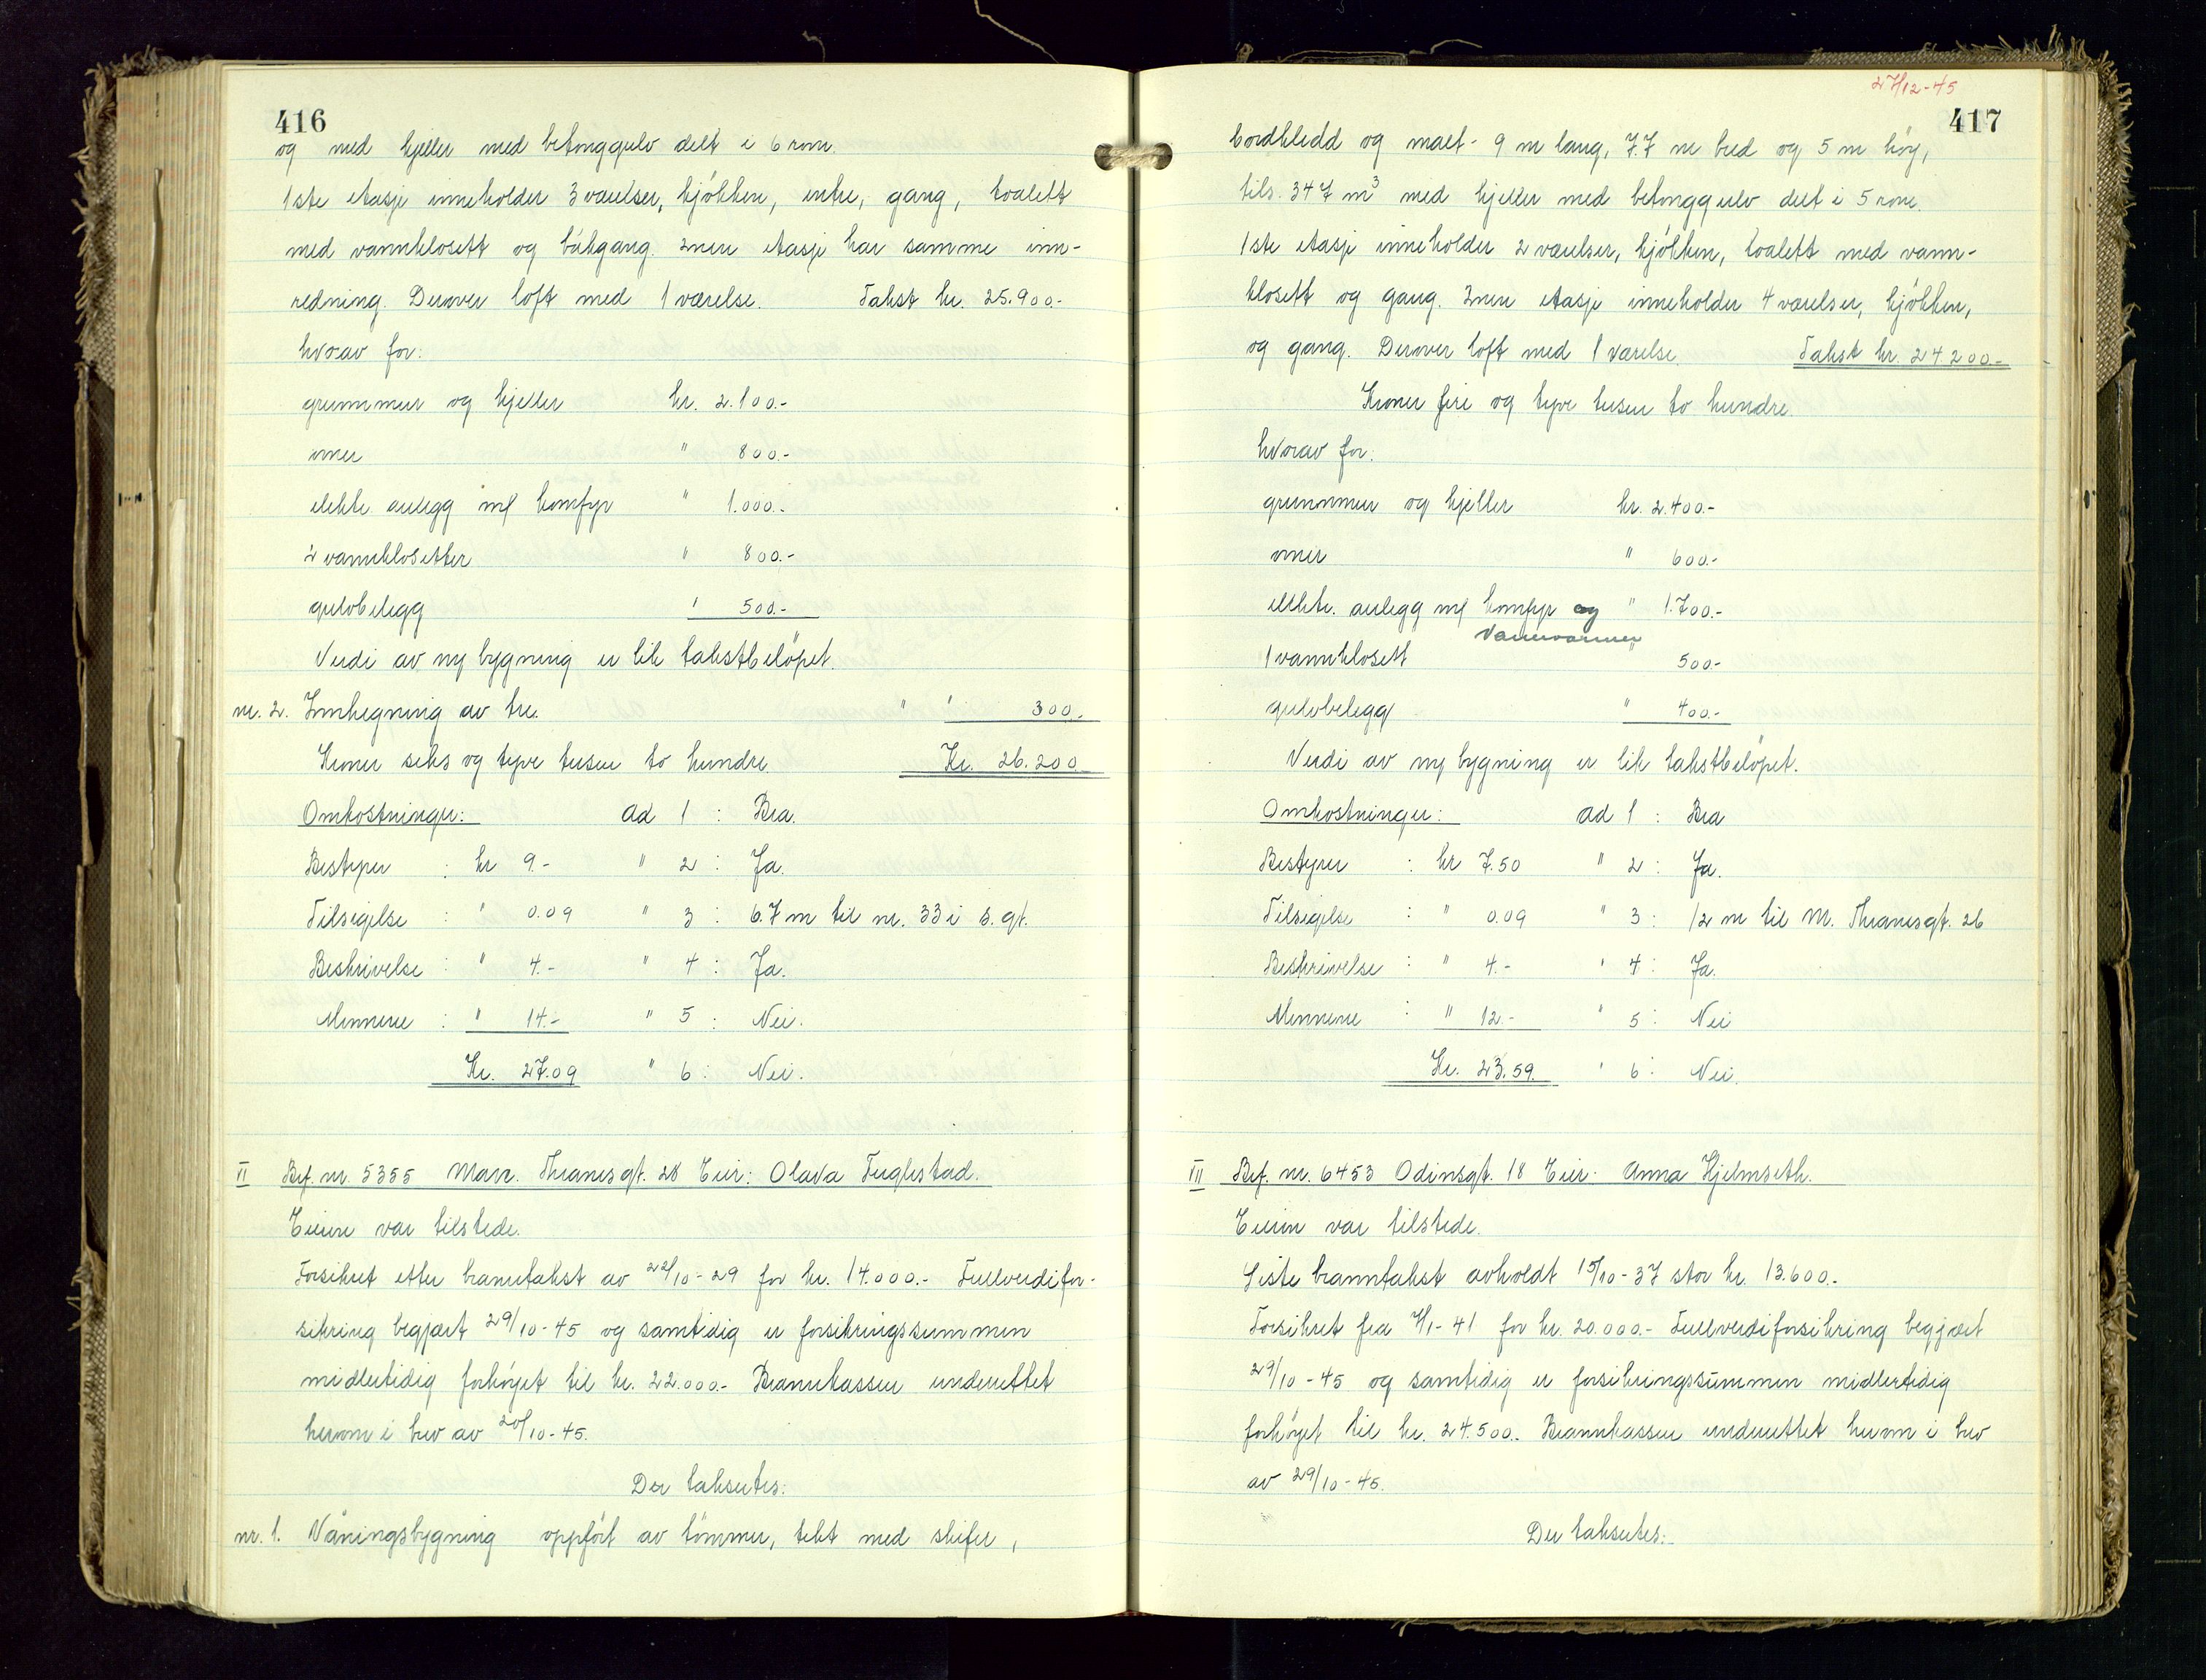 416
og med kjeller med betonggulv delt i 6 rom.
1ste etasje inneholder 3 værelser, kjøkken, entre, gang, toalett
med vannklosett og bakgang. 2nen etasje har samme inn-
redning. Derover loft med 1 værelse. Takst kr. 25.900.-
hvorav for:
grunnmur og kjeller kr. 2.100.-
ovner " 800.-
elektr. anlegg m/ komfyr " 1.000.-
2 vannklosetter " 800.-
gulvbelegg " 500.-
Verdi av ny bygning er lik takstbeløpet.
nr. 2. Innhegning av tre. " " 300.-
Kroner seks og tyve tusen to hundre. Kr. 26.200.-
Omkostninger: ad 1 : Bra.
Bestyrer : kr 9.- " 2 : Ja.
Tilsigelse : " 0.09 " 3 : 6.7 m til nr. 33 i s. gt.
Beskrivelse : " 4.- " 4 : Ja.
Mennene : " 14.- " 5 : Nei.
Kr. 27.09 " 6 : Nei.
II Bef. nr. 5355 Marc. Thranesgt. 28 Eier: Olava Fuglestad.
Eieren var tilstede.
Forsikret etter branntakst av 22/10-29 for kr. 14.000.- Fullverdifor-
sikring begjært 29/10-45 og samtidig er forsikringssummen
midlertidig forhøyet til kr. 22.000.- Brannkassen underrettet
herom i brev av 20/10-45.
Der takseres:
nr. 1. Våningsbygning oppført av tømmer, tekt med skifer,
27/12-45
417
bordkledd og malt - 9 m lang, 7.7 m bred og 5 m høy,
tils. 347 m³ med kjeller med betonggulv delt i 5 rom.
1ste etasje inneholder 2 værelser, kjøkken, toalett med vann-
klosett og gang. 2nen etasje inneholder 4 værelser, kjøkken,
og gang. Derover loft med 1 værelse. Takst kr. 24.200.-
Kroner fire og tyve tusen to hundre.
hvorav for:
grunnmur og kjeller kr. 2.400.-
ovner " 600.-
elektr. anlegg m/ komfyr og " 1.700.-
Vannvarmer
1 vannklosett " 500.-
gulvbelegg " 400.-
Verdi av ny bygning er lik takstbeløpet.
Omkostninger: ad 1 : Bra
Bestyrer : kr 7.50 " 2 : Ja.
Tilsigelse : " 0.09 " 3 : 12 m til M. Thranesgt. 26
Beskrivelse : " 4.- " 4 : Ja.
Mennene : " 12.- " 5 : Nei
Kr. 23.59. " 6 : Nei.
III Bef. nr. 6453 Odinsgt. 18 Eier: Anna Hjelmseth.
Eieren var tilstede.
Siste branntakst avholdt 15/10-37 stor kr. 13.600.-
Forsikret fra 7/1-41 for kr. 20.000.- Fullverdiforsikring begjært
29/10-45 og samtidig er forsikringssummen midlertidig
forhøyet til kr. 24.500.- Brannkassen underrettet herom i brev
av 29/10-45.
Der takseres: